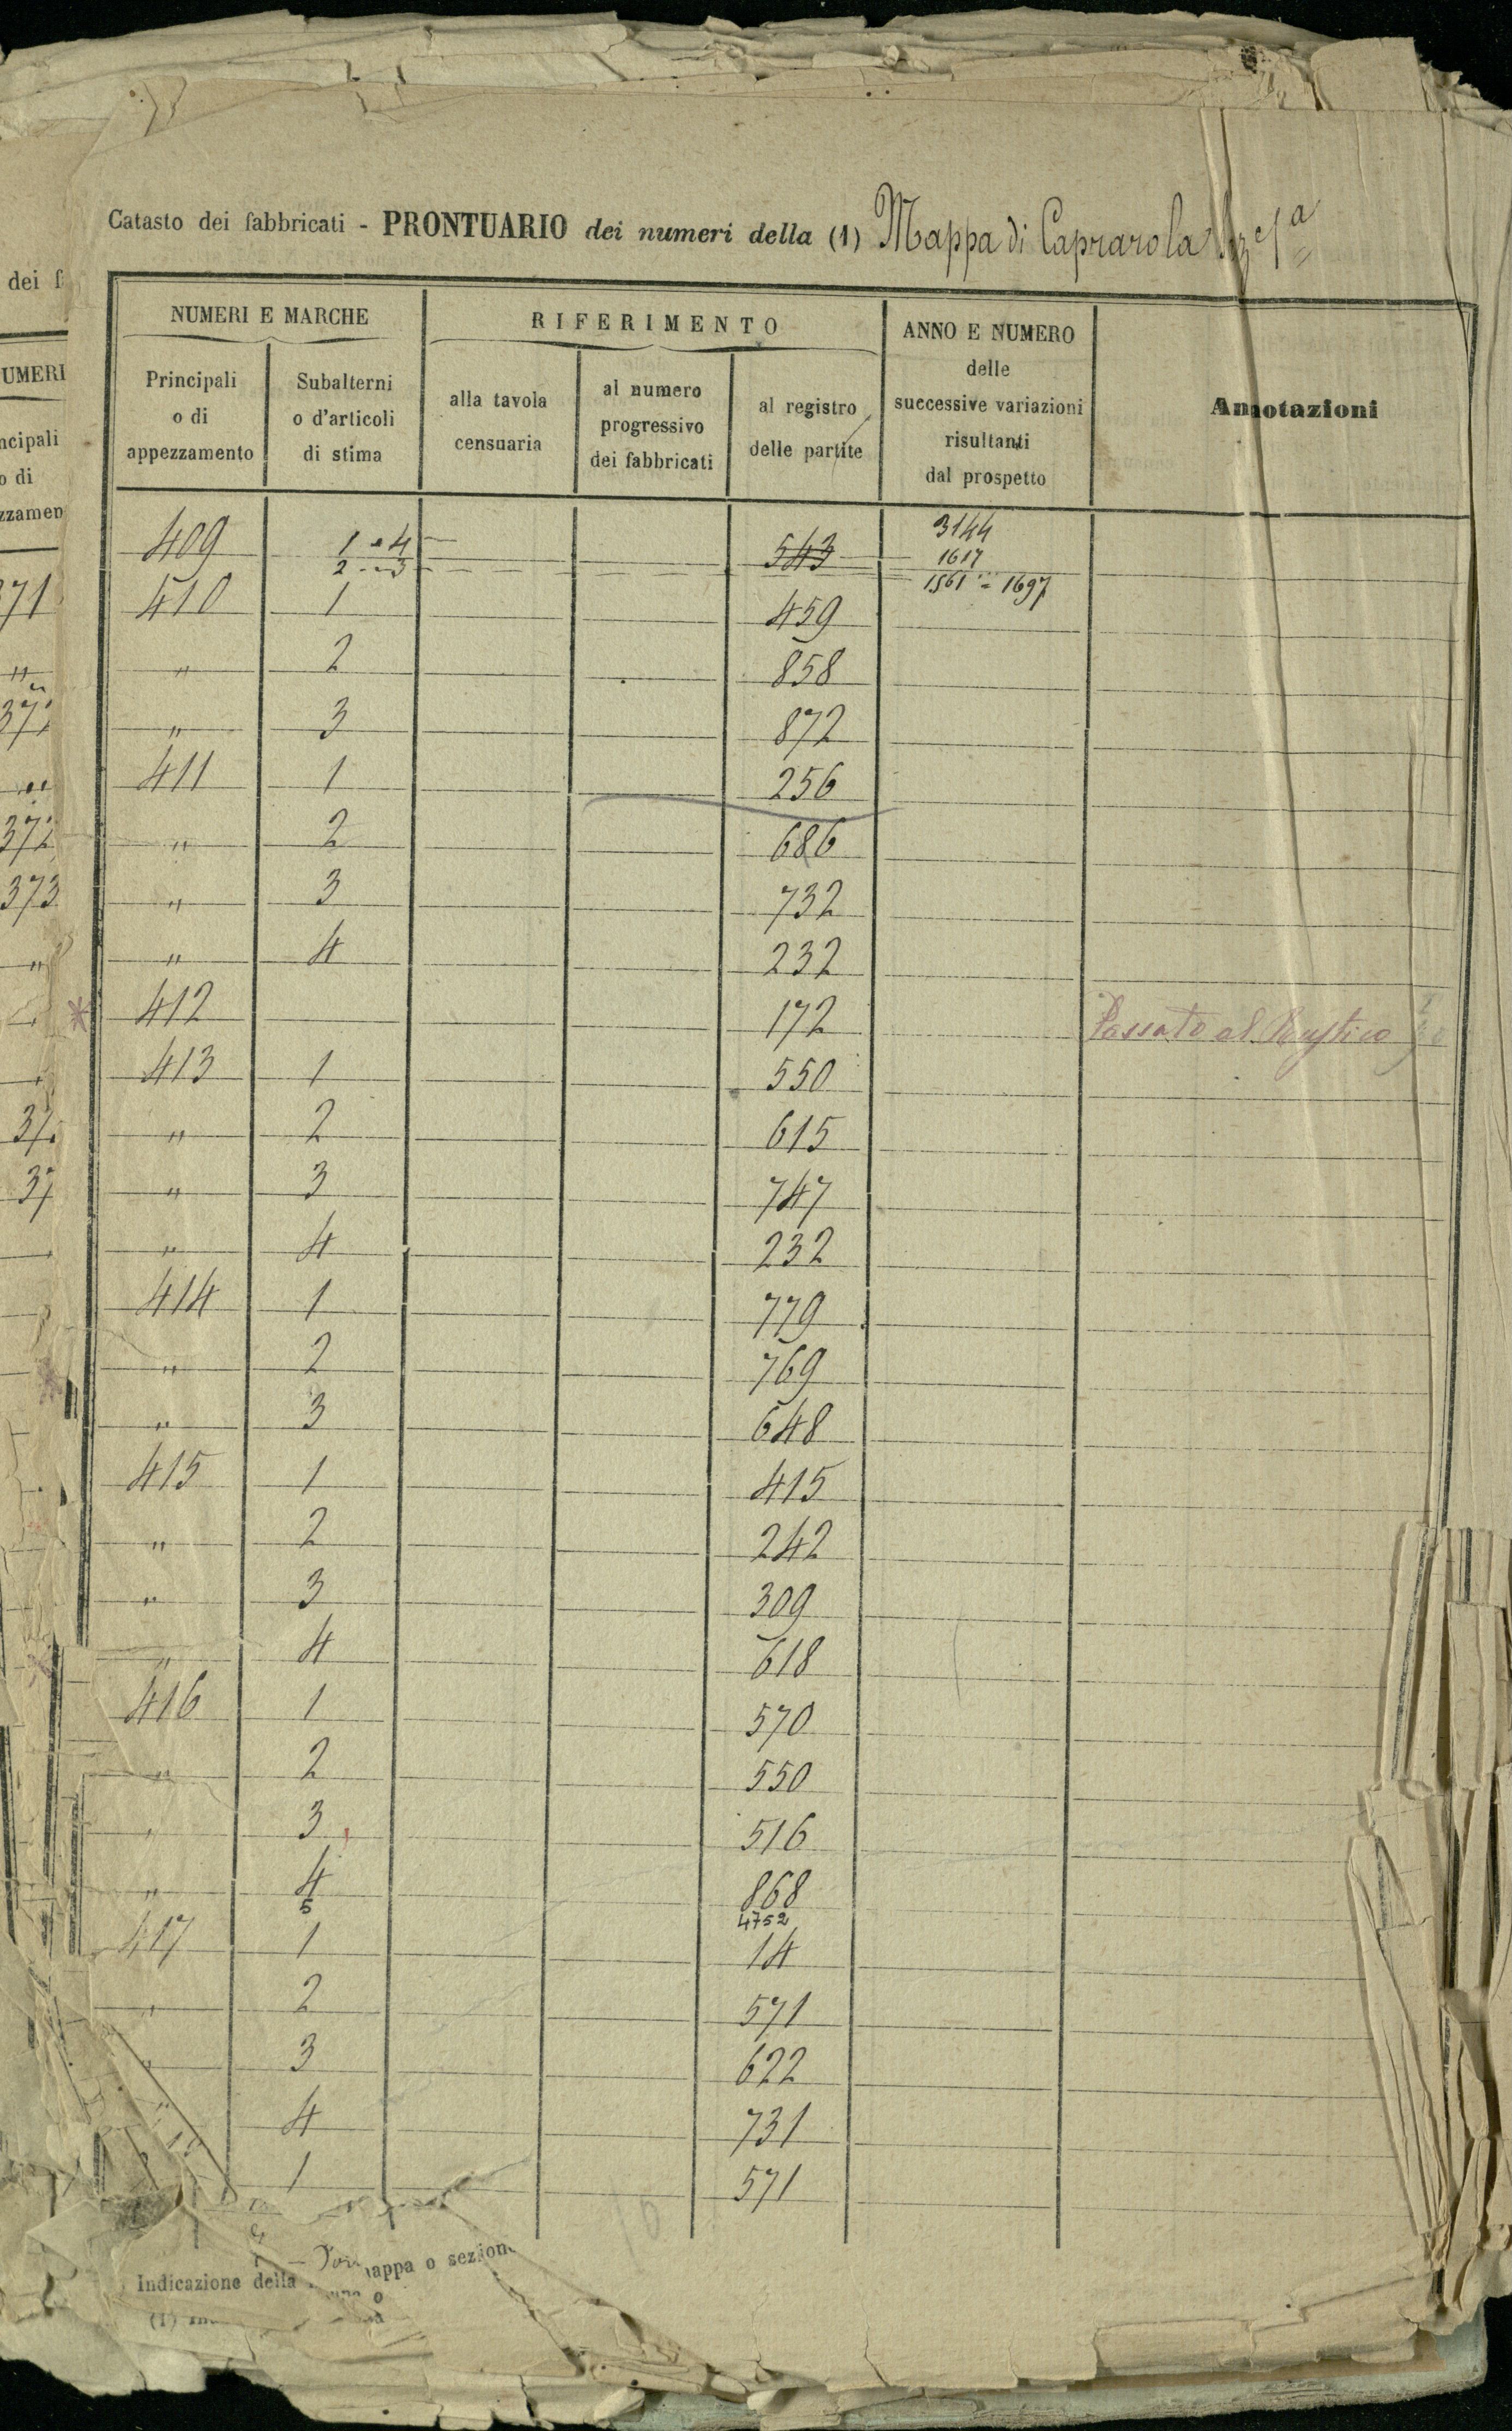 Catasto dei fabbricati - PRONTUARIO dei numeri della (1) Mappa di Caprarola Sez.e 1a
NUMERI E MARCHE
RIFERIMENTO
ANNO E NUMERO
delle
successive variazioni
risultanti
dal prospetto
Annotazioni
Principali
o di
appezzamento
Subalterni
o d'articoli
di stima
alla tavola
censuaria
al numero
progressivo
dei fabbricati
al registro
delle partite
409 1 e 4 543 3144
2 3 1617
1561 = 1697
410 1 459
" 2 858
" 3 872
411 1 256
" 2 686
" 3 732
" 4 232
412 172 Passato al Rustico
413 1 550
" 2 615
" 3 747
" 4 232
414 1 779
" 2 769
" 3 648
415 1 415
" 2 242
" 3 309
" 4 618
416 1 570
" 2 550
" 3 516
" 4 868
5 4752
417 1 14
" 2 571
" 3 622
4 731
1 571
Indicazione della mappa o sezione
(1)
dei f
UMERI
ncipali
o di
zzamen
371
"
372
373
"